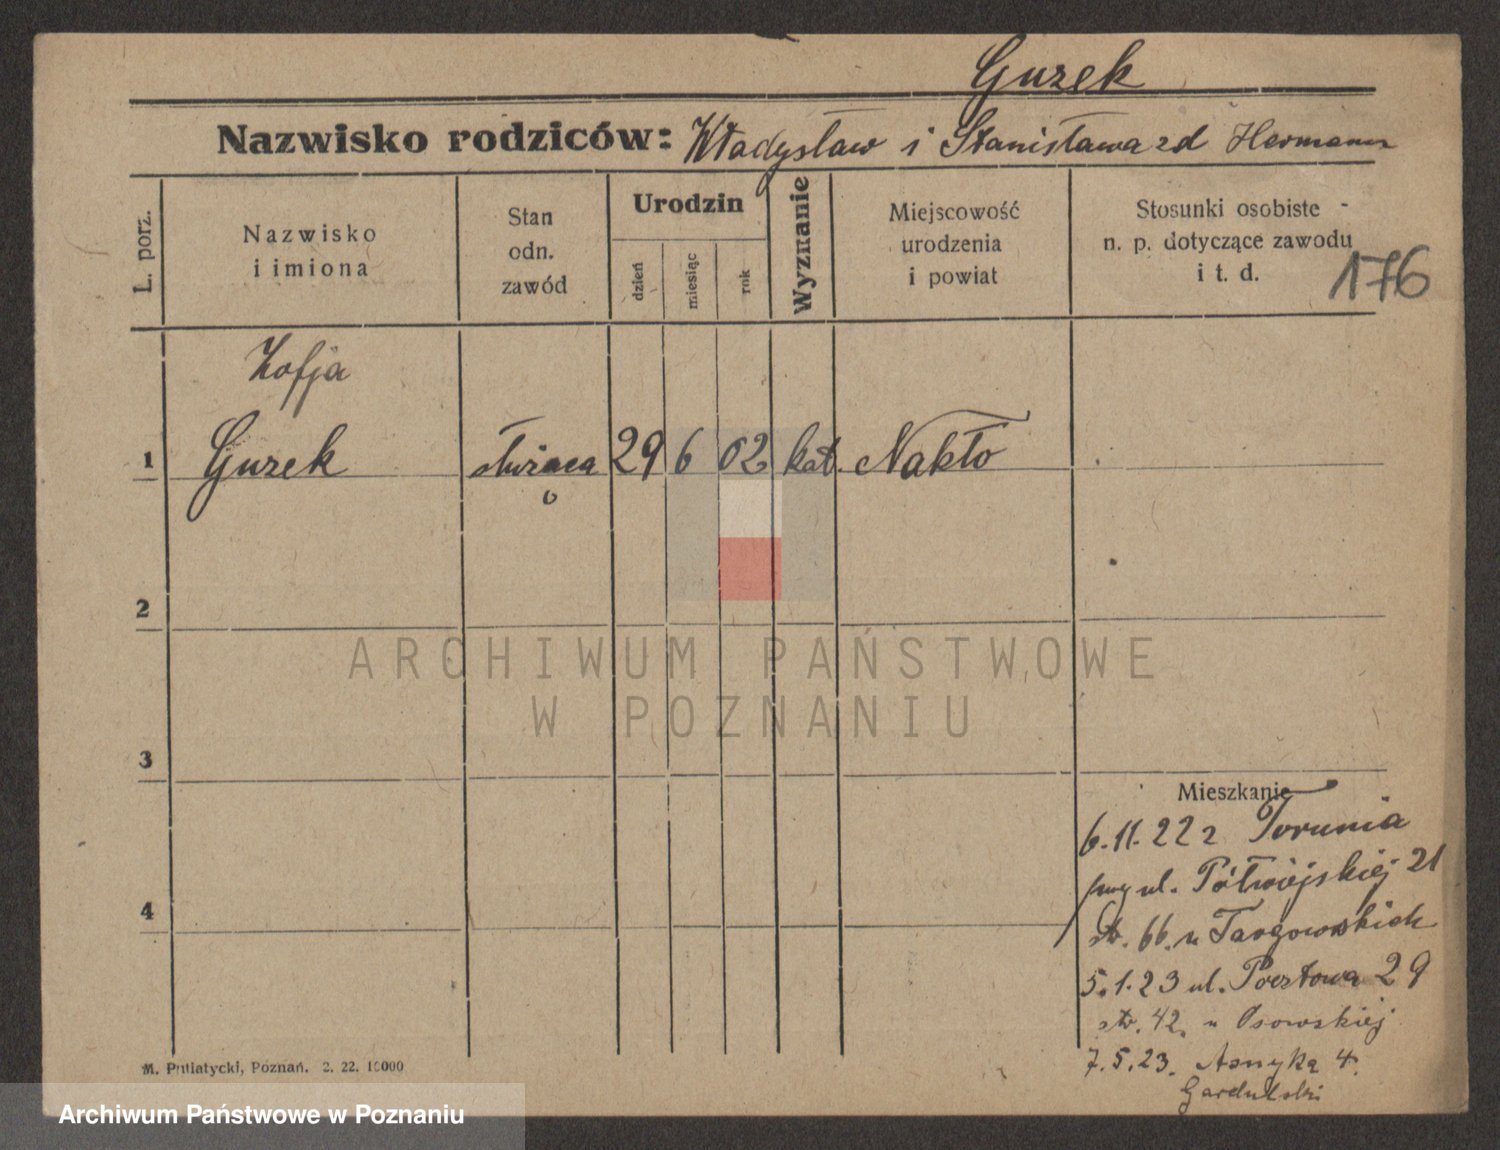 Guzek
Nazwisko rodziców: Władysław i Stanisława zd Hermann
L. porz.
Nazwisko
i imiona
Stan
odn.
zawód
Urodzin
dzień
miesiąc
rok
Wyznanie
Miejscowość
urodzenia
i powiat
Stosunki osobiste
n. p. dotyczące zawodu
i t. d.
176
Zofja
1 Guzek służąca 29 6 02 kat. Nakło
2
ARCHIWUM PAŃSTWOWE
W POZNANIU
3
Mieszkanie
6.11.22 z Torunia
przy ul. Półwiejskiej 21
4
str. 66. u Targowskich
5.1.23 ul. Pocztowa 29
str. 42. u Osowskiej
7.5.23. Asnyka 4.
M. Putiatycki, Poznań. 2. 22. 10000
Archiwum Państwowe w Poznaniu